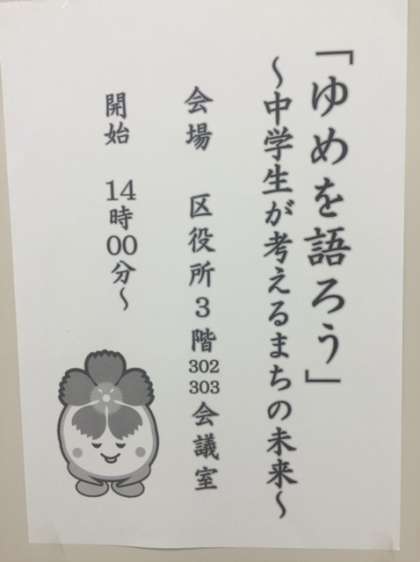 「ゆめを語ろう」
～中学生が考えるまちの未来～
会場　区役所3階302 303会議室
開始　14時00分～